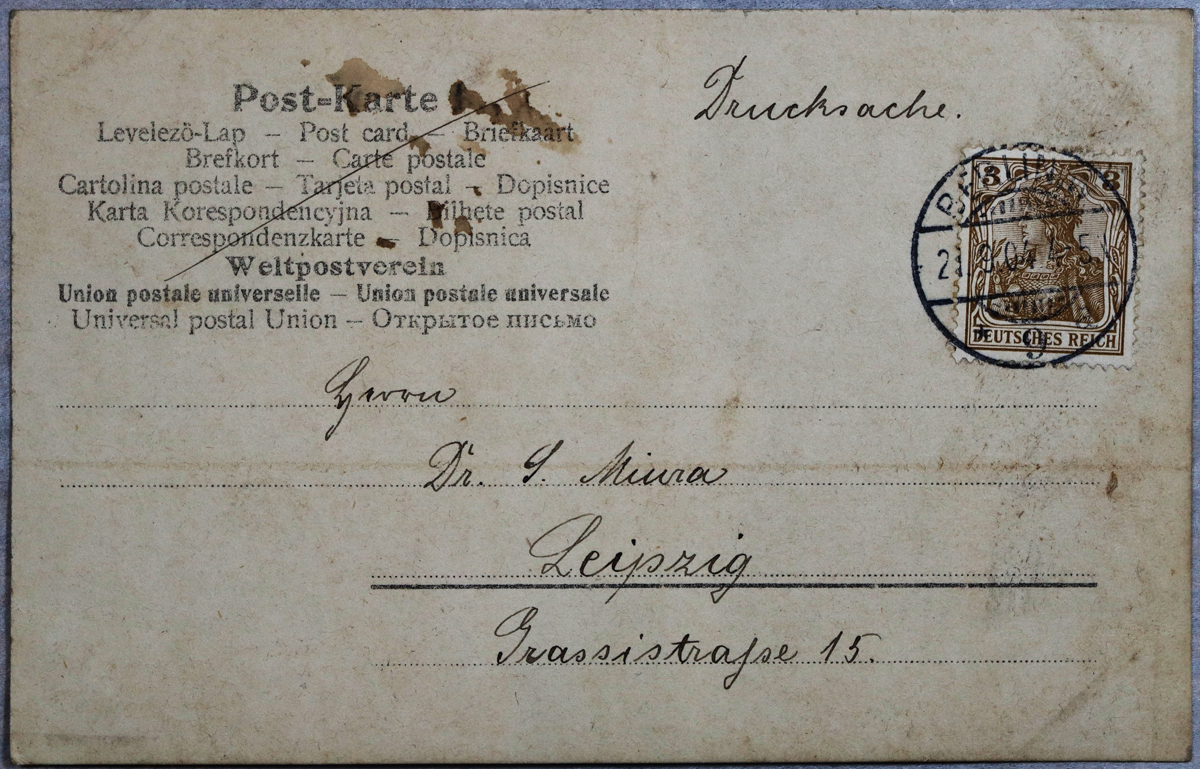 Post-Karte
Levelezö-Lap – Post card – Briefkaart
Brefkort – Carte postale
Cartolina postale – Tarjeta postal – Dopisnice
Karta Korespondencyjna – Bilhete postal
Correspondenzkarte – Dopisnica
Weltpostverein
Union postale universelle – Union postale universale
Universal postal Union – Открытое письмо
Drucksache.
3 3
DEUTSCHES REICH
BERLIN
9
Herrn
Dr. S. Miura
Leipzig
Grassistraße 15.